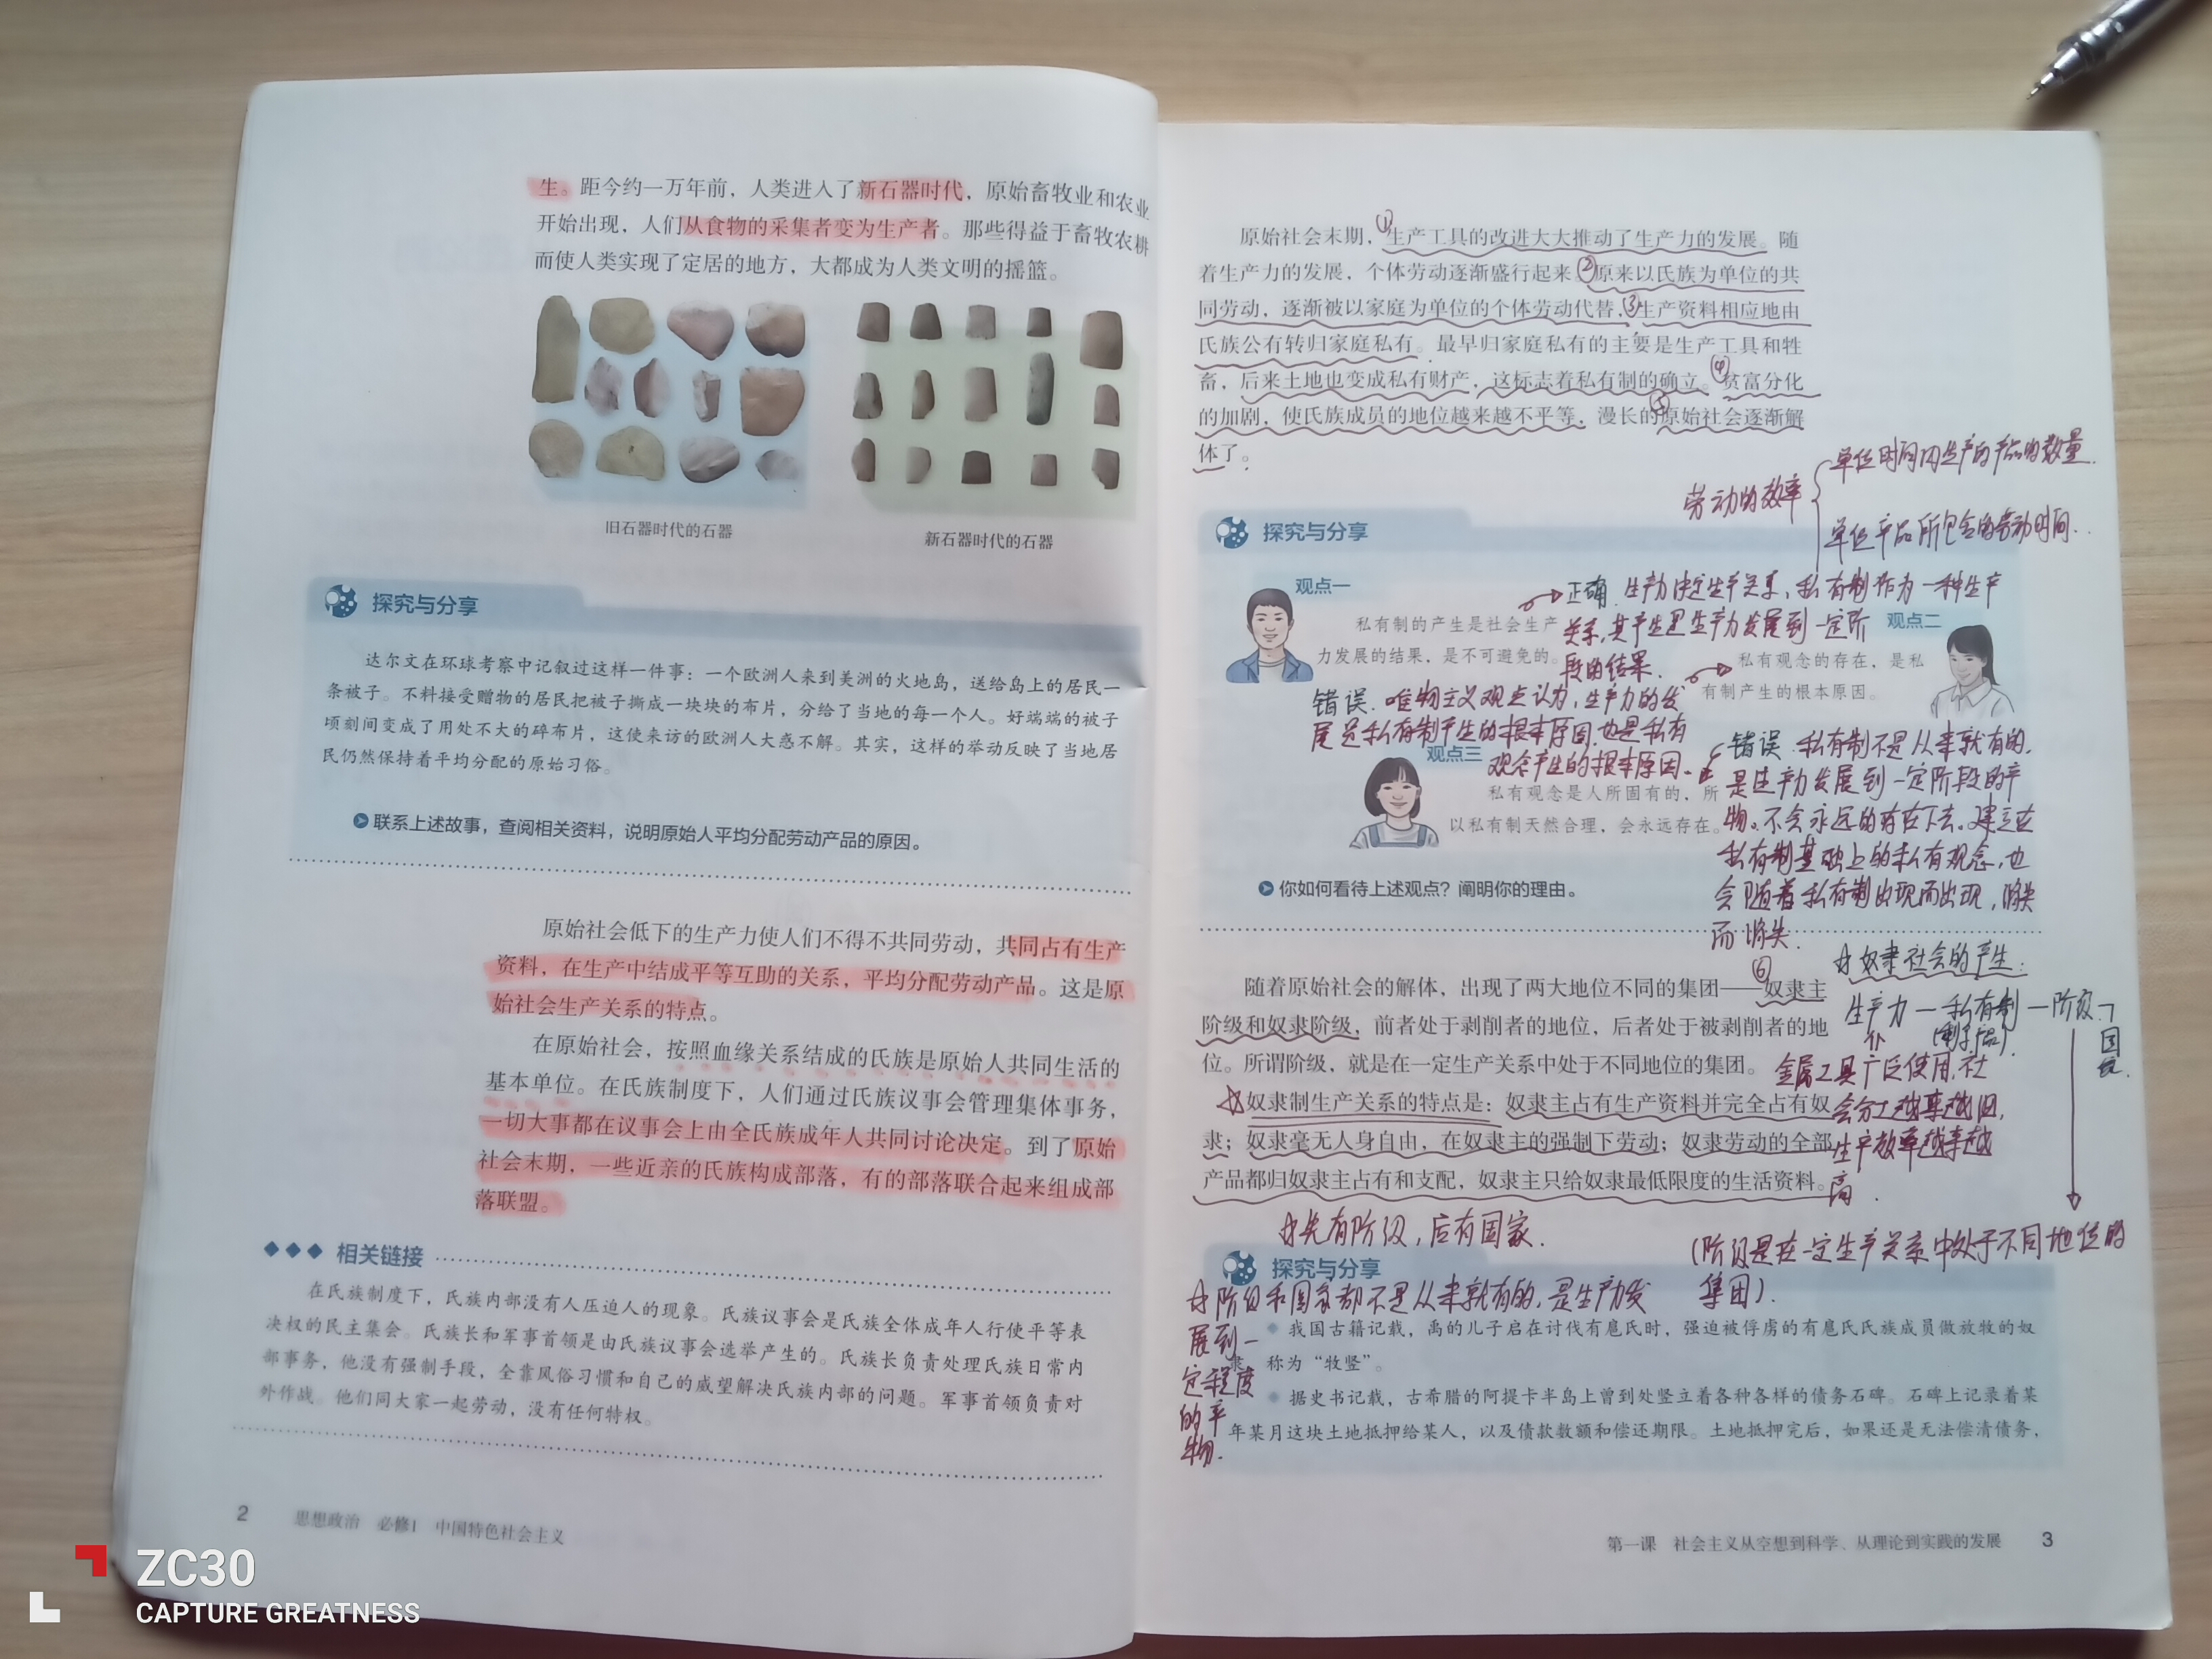 生。距今约一万年前，人类进入了新石器时代，原始畜牧业和农业
开始出现，人们从食物的采集者变为生产者。那些得益于畜牧农耕
而使人类实现了定居的地方，大都成为人类文明的摇篮。
旧石器时代的石器
新石器时代的石器
探究与分享
达尔文在环球考察中记叙过这样一件事：一个欧洲人来到美洲的火地岛，送给岛上的居民一
条被子。不料接受赠物的居民把被子撕成一块块的布片，分给了当地的每一个人。好端端的被子
顷刻间变成了用处不大的碎布片，这使来访的欧洲人大惑不解。其实，这样的举动反映了当地居
民仍然保持着平均分配的原始习俗。
联系上述故事，查阅相关资料，说明原始人平均分配劳动产品的原因。
原始社会低下的生产力使人们不得不共同劳动，共同占有生产
资料，在生产中结成平等互助的关系，平均分配劳动产品。这是原
始社会生产关系的特点。
在原始社会，按照血缘关系结成的氏族是原始人共同生活的
基本单位。在氏族制度下，人们通过氏族议事会管理集体事务，
一切大事都在议事会上由全氏族成年人共同讨论决定。到了原始
社会末期，一些近亲的氏族构成部落，有的部落联合起来组成部
落联盟。
相关链接
在氏族制度下，氏族内部没有人压迫人的现象。氏族议事会是氏族全体成年人行使平等表
决权的民主集会。氏族长和军事首领是由氏族议事会选举产生的。氏族长负责处理氏族日常内
部事务，他没有强制手段，全靠风俗习惯和自己的威望解决氏族内部的问题。军事首领负责对
外作战。他们同大家一起劳动，没有任何特权。
2 思想政治 必修1 中国特色社会主义
ZC30
CAPTURE GREATNESS
原始社会末期，①生产工具的改进大大推动了生产力的发展。随
着生产力的发展，个体劳动逐渐盛行起来。②原来以氏族为单位的共
同劳动，逐渐被以家庭为单位的个体劳动代替，③生产资料相应地由
氏族公有转归家庭私有。最早归家庭私有的主要是生产工具和牲
畜，后来土地也变成私有财产，这标志着私有制的确立。④贫富分化
的加剧，使氏族成员的地位越来越不平等，漫长的⑤原始社会逐渐解
体了。
劳动的效率
单位时间内生产的产品的数量.
单位产品所包含的劳动时间.
探究与分享
观点一
私有制的产生是社会生产
力发展的结果，是不可避免的。
正确. 生产力决定生产关系，私有制作为一种生产
关系，其产生是生产力发展到一定阶
段的结果.
观点二
私有观念的存在，是私
有制产生的根本原因。
错误. 唯物主义观点认为，生产力的发
展是私有制产生的根本原因，也是私有
观念产生的根本原因.
观点三
私有观念是人所固有的，所
以私有制天然合理，会永远存在。
错误. 私有制不是从来就有的，
是生产力发展到一定阶段的产
物。不会永远的存在下去。建立在
私有制基础上的私有观念，也
会随着私有制出现而出现，消失
而消失.
你如何看待上述观点？阐明你的理由。
随着原始社会的解体，出现了两大地位不同的集团——⑥奴隶主
阶级和奴隶阶级，前者处于剥削者的地位，后者处于被剥削者的地
位。所谓阶级，就是在一定生产关系中处于不同地位的集团。
奴隶制生产关系的特点是：奴隶主占有生产资料并完全占有奴
隶；奴隶毫无人身自由，在奴隶主的强制下劳动；奴隶劳动的全部
产品都归奴隶主占有和支配，奴隶主只给奴隶最低限度的生活资料。
奴隶社会的产生：
生产力—私有制—阶级
(剩余产品).
国家.
金属工具广泛使用,社
会分工越来越细,
生产效率越来越
高.
先有阶级，后有国家.
(阶级是在一定生产关系中处于不同地位的
集团).
探究与分享
阶级和国家都不是从来就有的，是生产力发
展到一
定程度
的产
物.
我国古籍记载，禹的儿子启在讨伐有扈氏时，强迫被俘虏的有扈氏氏族成员做放牧的奴
隶，称为“牧竖”。
据史书记载，古希腊的阿提卡半岛上曾到处竖立着各种各样的债务石碑。石碑上记录着某
年某月这块土地抵押给某人，以及债款数额和偿还期限。土地抵押完后，如果还是无法偿清债务，
第一课 社会主义从空想到科学、从理论到实践的发展 3